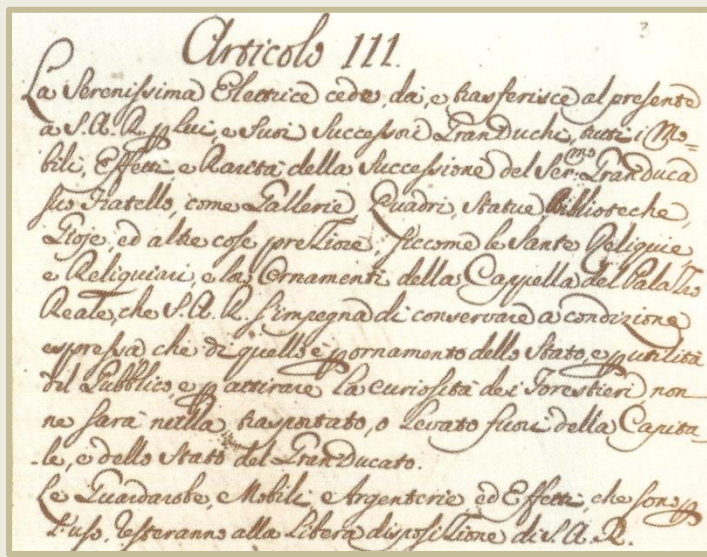 3
Articolo III.
La Serenissima Elettrice cede, dà, e trasferisce al presente
à S. A. R. p lui, e Suoi Successori GranDuchi, tutti i Mo=
bili, Effetti e Rarità della Successione del Ser.mo GranDuca
suo Fratello, come Gallerie, Quadri, Statue Biblioteche,
Gioje, ed altre cose preziose, siccome le Sante Reliquie,
e Reliquiari, e loro Ornamenti della Cappella del Palazzo
Reale, che S. A. R. s'impegna di conservare a condizione
espressa che di quello è p ornamento dello Stato, e p utilità
del Pubblico, e p attirare la curiosità dei Forestieri non
ne sarà nulla trasportato, o levato fuori della Capita=
=le, e dello Stato del GranDucato.
Le Guardarobe, Mobili, e Argenterie ed Effetti, che sono p
l'uso, resteranno alla libera disposizione di S. A. R.